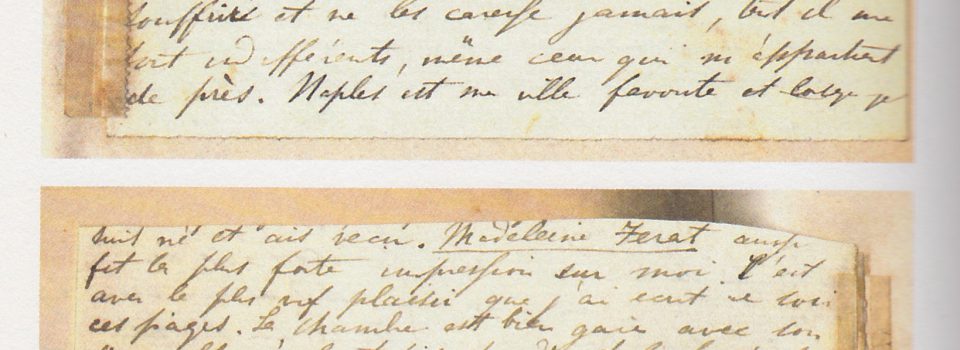 souffrir et ne les caresse jamais, tout il me
sont indifférents, même ceux qui m'appartient
de près. Naples est ma ville favorite et lorsque je
suis né et ais vécu. Madeleine Ferat aussi
fit la plus forte impression sur moi. C'est
avec le plus vif plaisir que j'ai ecrit ce soir
ces pages. La chambre est bien gaie avec son